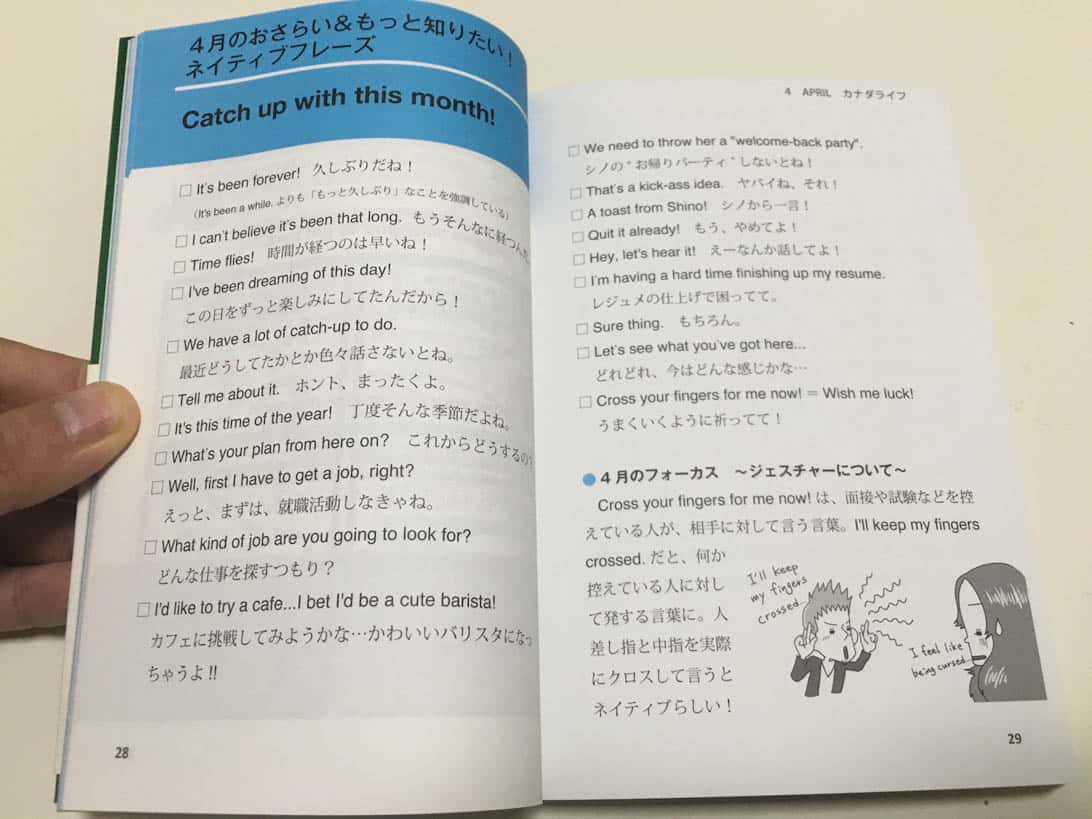 4月のおさらい&もっと知りたい！
ネイティブフレーズ
Catch up with this month!
□ It's been forever!　久しぶりだね！
（It's been a while. よりも「もっと久しぶり」なことを強調している）
□ I can't believe it's been that long.　もうそんなに経つんだ
□ Time flies!　時間が経つのは早いね！
□ I've been dreaming of this day!
この日をずっと楽しみにしてたんだから！
□ We have a lot of catch-up to do.
最近どうしてたかとか色々話さないとね。
□ Tell me about it.　ホント、まったくよ。
□ It's this time of the year!　丁度そんな季節だよね。
□ What's your plan from here on?　これからどうするの？
□ Well, first I have to get a job, right?
えっと、まずは、就職活動しなきゃね。
□ What kind of job are you going to look for?
どんな仕事を探すつもり？
□ I'd like to try a cafe...I bet I'd be a cute barista!
カフェに挑戦してみようかな…かわいいバリスタになっ
ちゃうよ!!
28
4　APRIL　カナダライフ
□ We need to throw her a "welcome-back party".
シノの"お帰りパーティ"しないとね！
□ That's a kick-ass idea.　ヤバイね、それ！
□ A toast from Shino!　シノから一言！
□ Quit it already!　もう、やめてよ！
□ Hey, let's hear it!　えーなんか話してよ！
□ I'm having a hard time finishing up my resume.
レジュメの仕上げで困ってて。
□ Sure thing.　もちろん。
□ Let's see what you've got here...
どれどれ、今はどんな感じかな…
□ Cross your fingers for me now! = Wish me luck!
うまくいくように祈ってて！
● 4月のフォーカス　〜ジェスチャーについて〜
Cross your fingers for me now! は、面接や試験などを控
えている人が、相手に対して言う言葉。I'll keep my fingers
crossed. だと、何か
控えている人に対し
て発する言葉に。人
差し指と中指を実際
にクロスして言うと
ネイティブらしい！
I'll keep
my fingers
crossed
I feel like
being cursed..
29